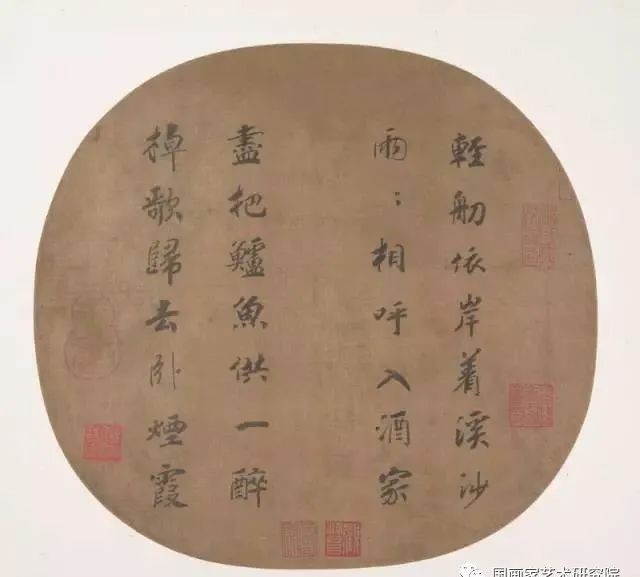 輕舠依岸着溪沙
兩〻相呼入酒家
盡把鱸魚供一醉
棹歌歸去卧煙霞
国画家艺术研究院